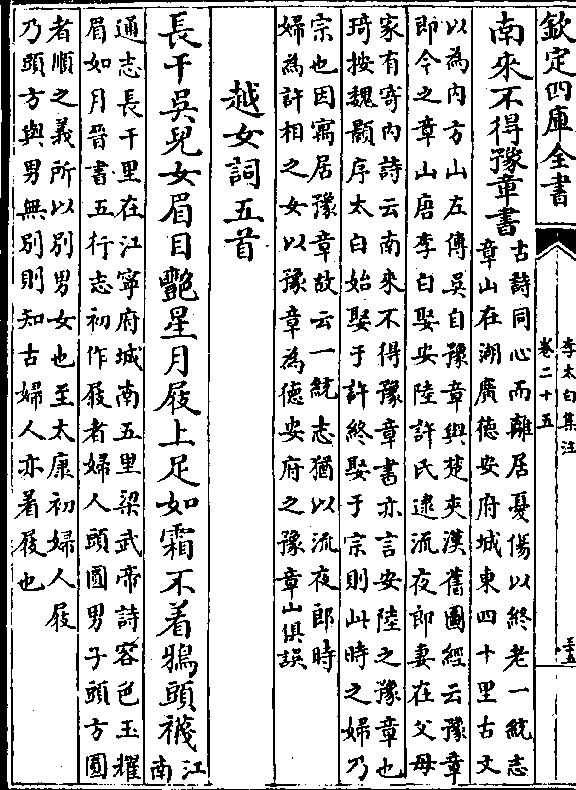 欽定四庫全書
李太白集注
卷二十五
三五
南來不得豫章書
古詩同心而離居憂傷以終老一統志
章山在湖廣德安府城東四十里古文
以為内方山左傳吳自豫章與楚夾漢舊圖經云豫章
即今之章山唐李白娶安陸許氏逮流夜郎妻在父母
家有寄内詩云南來不得豫章書亦言安陸之豫章也
琦按魏顥序太白始娶于許終娶于宗則此時之婦乃
宗也因寓居豫章故云一統志猶以流夜郎時
婦為許相之女以豫章為德安府之豫章山俱誤
越女詞五首
長干吳兒女眉目艷星月屐上足如霜不着鴉頭襪
江
南
通志長干里在江寧府城南五里梁武帝詩容色玉耀
眉如月晉書五行志初作屐者婦人頭圓男子頭方圓
者順之義所以别男女也至太康初婦人屐
乃頭方與男無别則知古婦人亦着屐也